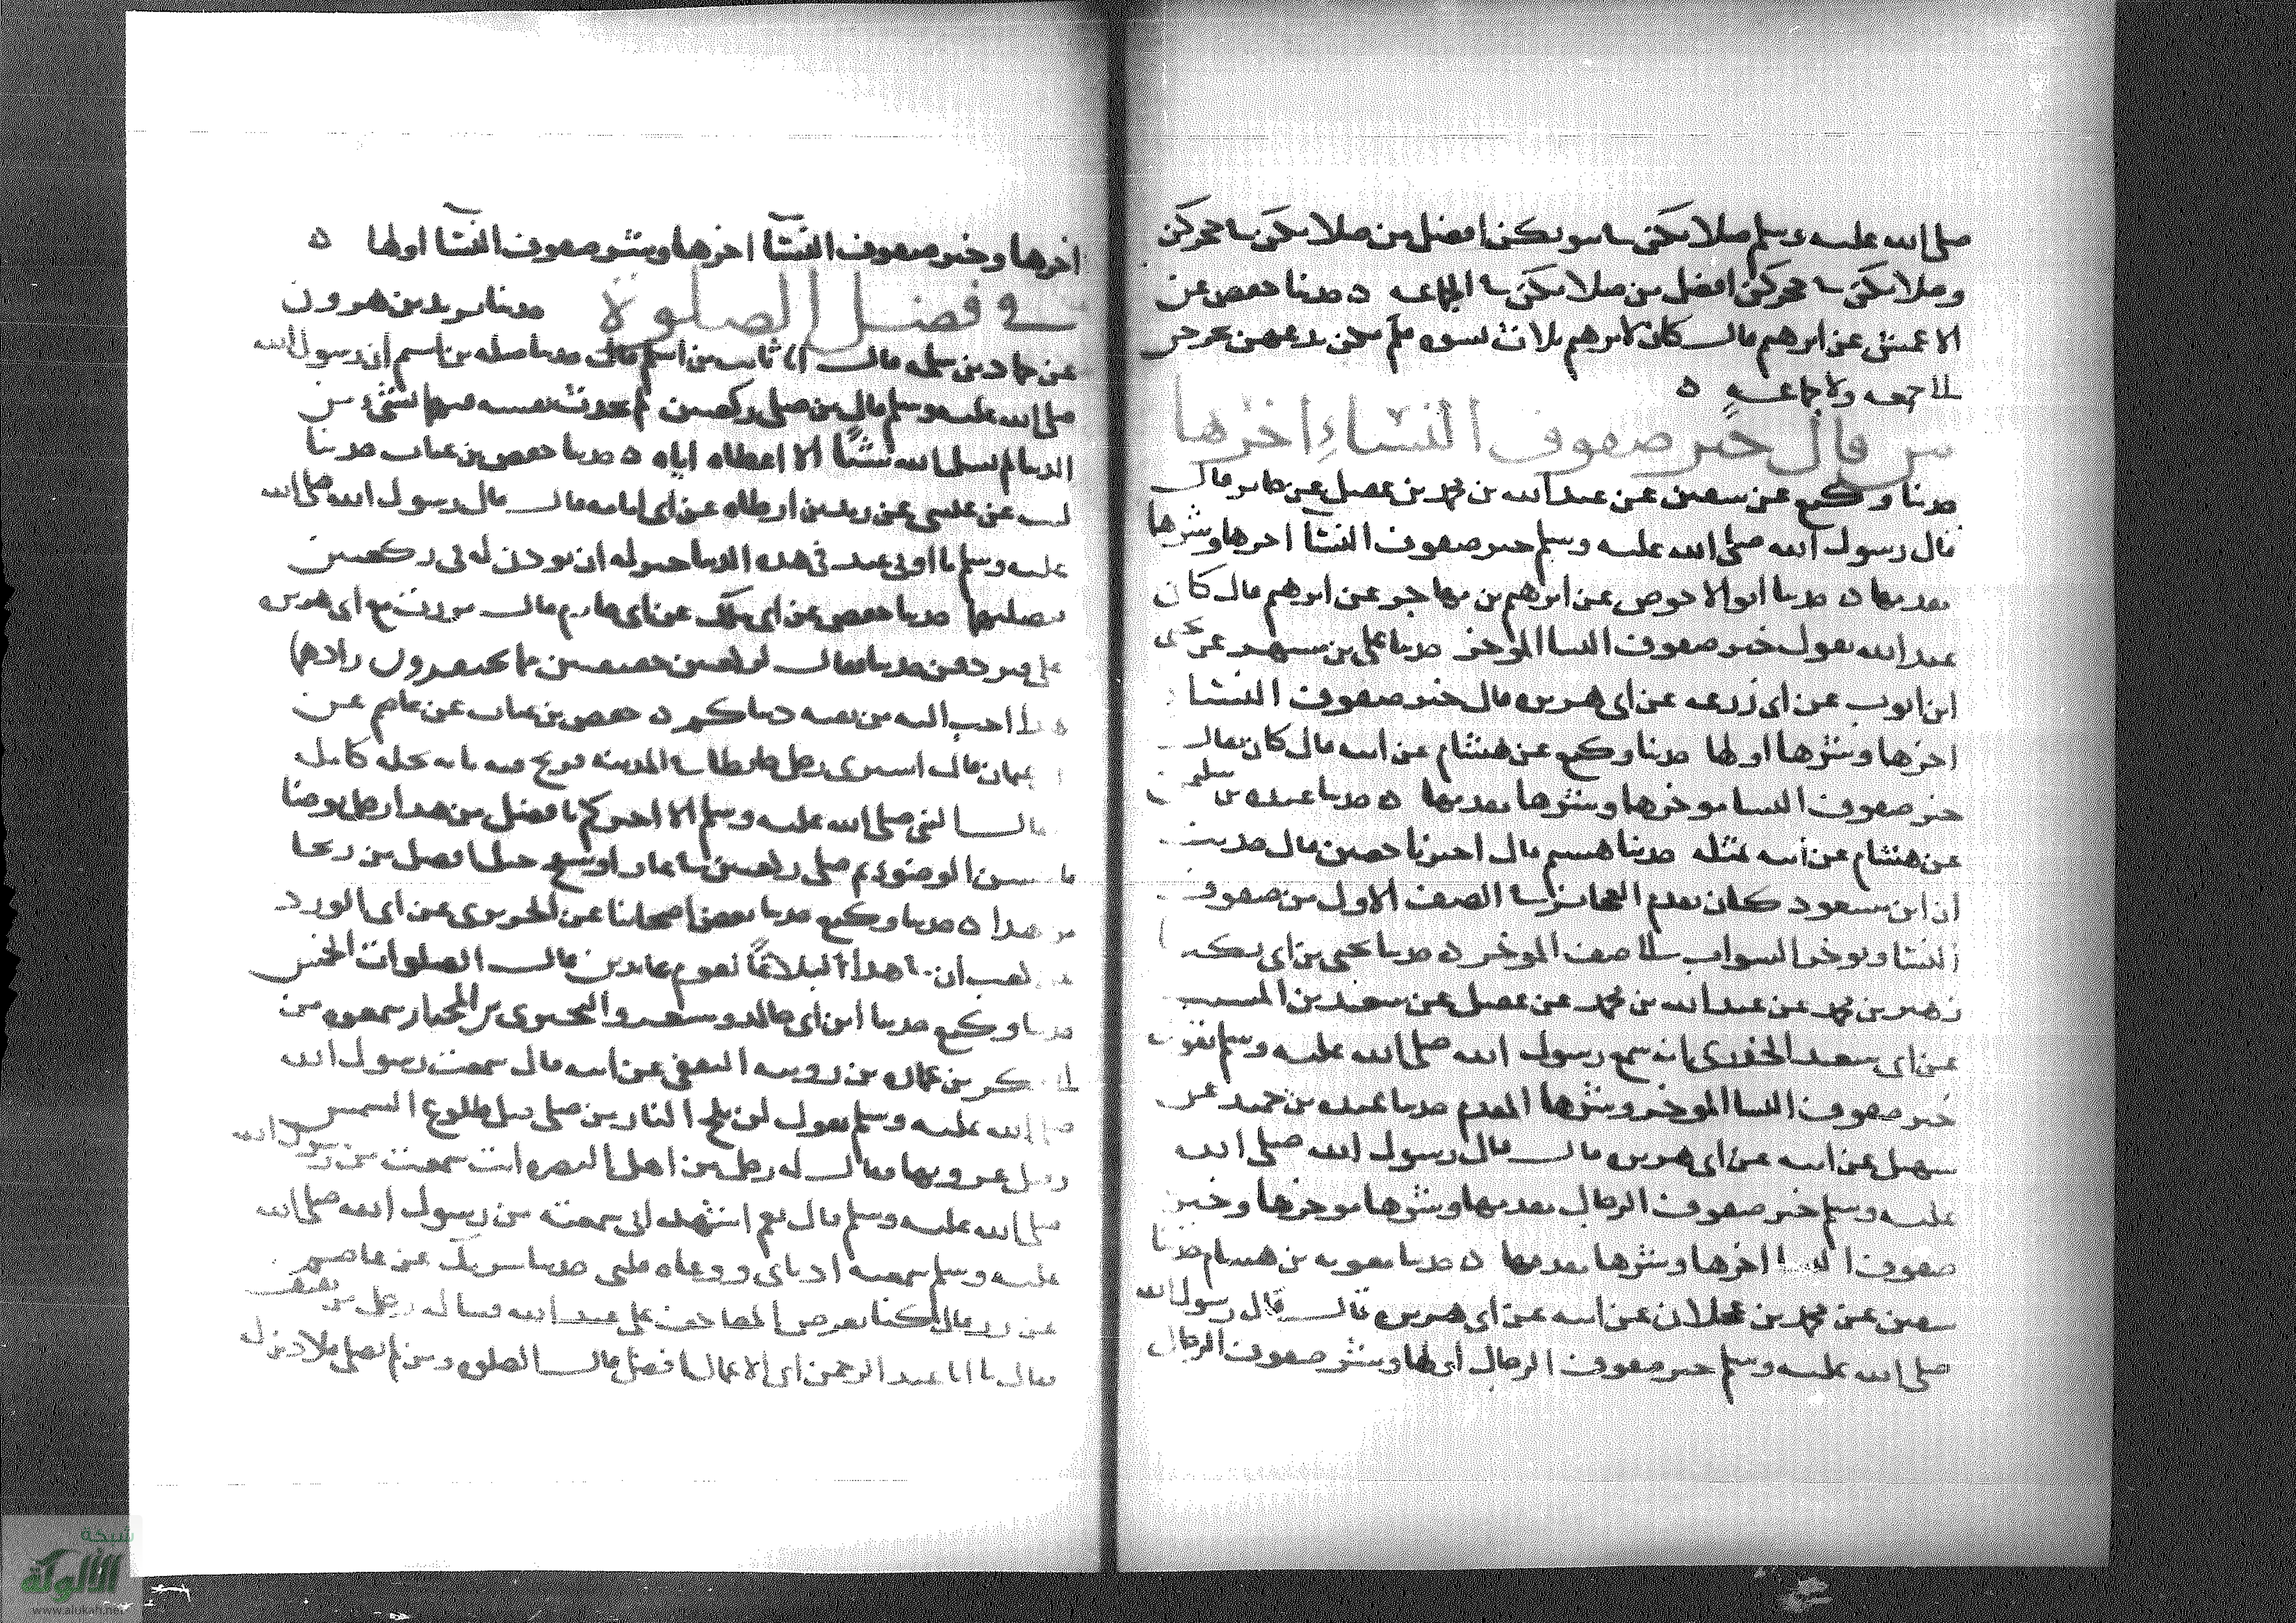 صلى الله عليه وسلم صلاتكن في بيوتكن افضل من صلاتكن في حجركن
وصلاتكن في حجركن افضل من صلاتكن في الجماعه ه حدثنا حفص عن
الاعمش عن ابرهيم قال كان لابرهيم ثلاث نسوه فلم يكن يدعهن يخرجن
الى جمعه ولا جماعه ه
من قال خير صفوف النساء اخرها
حدثنا وكيع عن سفين عن عبد الله بن محمد بن عقيل عن جابر قال
قال رسول الله صلى الله عليه وسلم خير صفوف النسآ اخرها وشرها
مقدمها ه حدثنا ابو الاحوص عن ابرهيم بن مهاجر عن ابرهيم قال كان
عبد الله يقول خير صفوف النسا المؤخر حدثنا علي بن مسهر عن يحيى
ابن ايوب عن ابي زرعه عن ابي هريره قال خير صفوف النسا
اخرها وشرها اولها حدثنا وكيع عن هشام عن ابيه قال كان يقال
خير صفوف النسا موخرها وشرها مقدمها ه حدثنا عبده بن سليمن
عن هشام عن ابيه بمثله حدثنا هشيم قال اخبرنا حصين قال حديث
ان ابن مسعود كان يقدم العجائز في الصف الاول من صفوف
النسا ويوخر الشواب الى الصف الموخر ه حدثنا يحيى بن ابي بكير
زهير بن محمد عن عبد الله بن محمد بن عقيل عن سعيد بن المسيب
عن ابي سعيد الخدري انه سمع رسول الله صلى الله عليه وسلم يقول
خير صفوف النسا الموخر وشرها المقدم حدثنا عبده بن حميد عن
سهيل عن ابيه عن ابي هريره قال قال رسول الله صلى الله
عليه وسلم خير صفوف الرجال مقدمها وشرها موخرها وخير
صفوف النسا اخرها وشرها مقدمها ه حدثنا معويه بن هشام حدثنا
سفين عن محمد بن عجلان عن ابيه عن ابي هريره قال قال رسول الله
صلى الله عليه وسلم خير صفوف الرجال اولها وشر صفوف الرجال
اخرها وخير صفوف النسآ اخرها وشر صفوف النسآ اولها ه
في فضل الصلوة حدثنا يزيد بن هرون
عن حماد بن سلمه قال انا ثابت بن اسلم قال حدثنا صله بن اشيم ان رسول الله
صلى الله عليه وسلم قال من صلى ركعتين لم يحدث نفسه فيهما بشيء من
الدنيا لم يسل الله شيئا الا اعطاه اياه ه حدثنا حفص بن غياث حدثنا
ليث عن عيسى عن زيد بن ارطاه عن ابي امامه قال قال رسول الله صلى الله
عليه وسلم ما اوتي عبد في هذه الدنيا خير له ان يوذن له في ركعتين
يصليهما حدثنا حفص عن ابي ملك عن ابي حازم قال مررت مع ابي هريره
على قبر دفن حديثا فقال لركعتين خفيفتين مما تحتقرون زادهما
هذا احب اليه من بقيه دنياكم ه حفص بن غياث عن عاصم عن
عثمان قال اشترى رجل حايطا في المدينه فربح فيه مايه نخله كامل
فقال النبي صلى الله عليه وسلم الا اخبركم بافضل من هذا رجل توضا
فاحسن الوضوء ثم صلى ركعتين في غار او سفح جبل افضل من ربحا
من هذا ه حدثنا وكيع حدثنا بعض اصحابنا عن الجريري عن ابي الورد
عن كعب ان في هذا لبلاغا لقوم عابدين قال الصلوات الخمس
حدثنا وكيع حدثنا ابن ابي خالد ومسعر والبختري بن المختار سمعوه من
ابي بكر بن عماره بن رويبه الثقفي عن ابيه قال سمعت رسول الله
صلى الله عليه وسلم يقول لن يلج النار من صلى قبل طلوع الشمس
وقبل غروبها فقال له رجل من اهل البصره انت سمعت من رسول الله
صلى الله عليه وسلم قال نعم اشهد اني سمعته من رسول الله صلى الله
عليه وسلم سمعته اذناي ووعاه قلبي حدثنا شريك عن عاصم
عن زر قال كنا نعرض المصاحف على عبد الله فساله رجل من ثقيف
فقال يا ابا عبد الرحمن اي الاعمال افضل قال الصلوه ومن لم يصل فلا دين له
شبكة
الألوكة
www.alukah.net